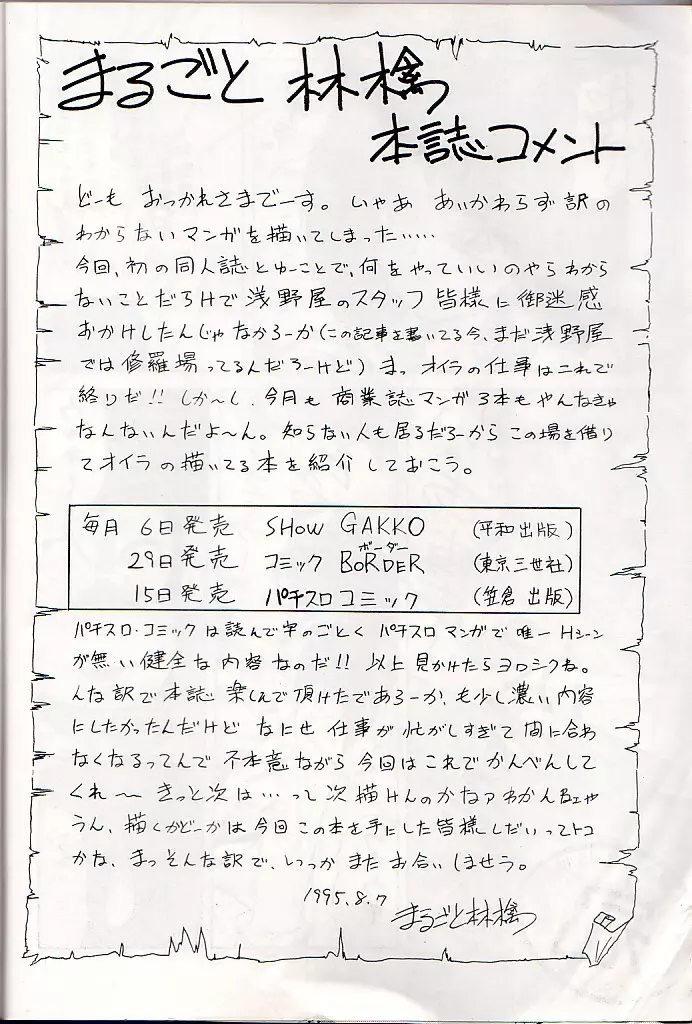 まるごと 林檎
本誌コメント
どーも おっかれさまでーす。いゃあ あいかわらず訳の
わからないマンガを描いてしまった……
今回、初の同人誌とゆーことで、何をやっていいのやらわから
ないことだらけで浅野屋のスタッフ皆様に御迷惑
おかけしたんじゃなかろーか(この記事を書いてる今、まだ浅野屋
では修羅場ってるんだろーけど) まっ オイラの仕事はこれで
終りだ!! しか〜し、今月も 商業誌マンガ3本もやんなきゃ
なんないんだよ〜ん。知らない人も居るだろーから この場を借り
てオイラの描いてる本を紹介しておこう。
毎月 6日発売 SHOW GAKKO (平和出版)
ボーダー
29日発売 コミック BORDER (東京三世社)
15日発売 パチスロコミック (笠倉出版)
パチスロ・コミックは読んで字のごとく パチスロマンガで唯一Hシーン
が無い健全な内容なのだ!! 以上見かけたらヨロシクね。
んな訳で本誌 楽しんで頂けたであろーか、も少し濃い内容
にしたかったんだけど なにせ 仕事が忙がしすぎて間に合わ
なくなるってんで 不本意ながら今回はこれでかんべんして
くれ〜 きっと次は…って次描けんのかなァわかん
うん、描くかどーかは今回この本を手にした皆様しだいってトコ
かな、まっそんな訳で、いつか また お合いしませう。
1995.8.7
まるごと林檎